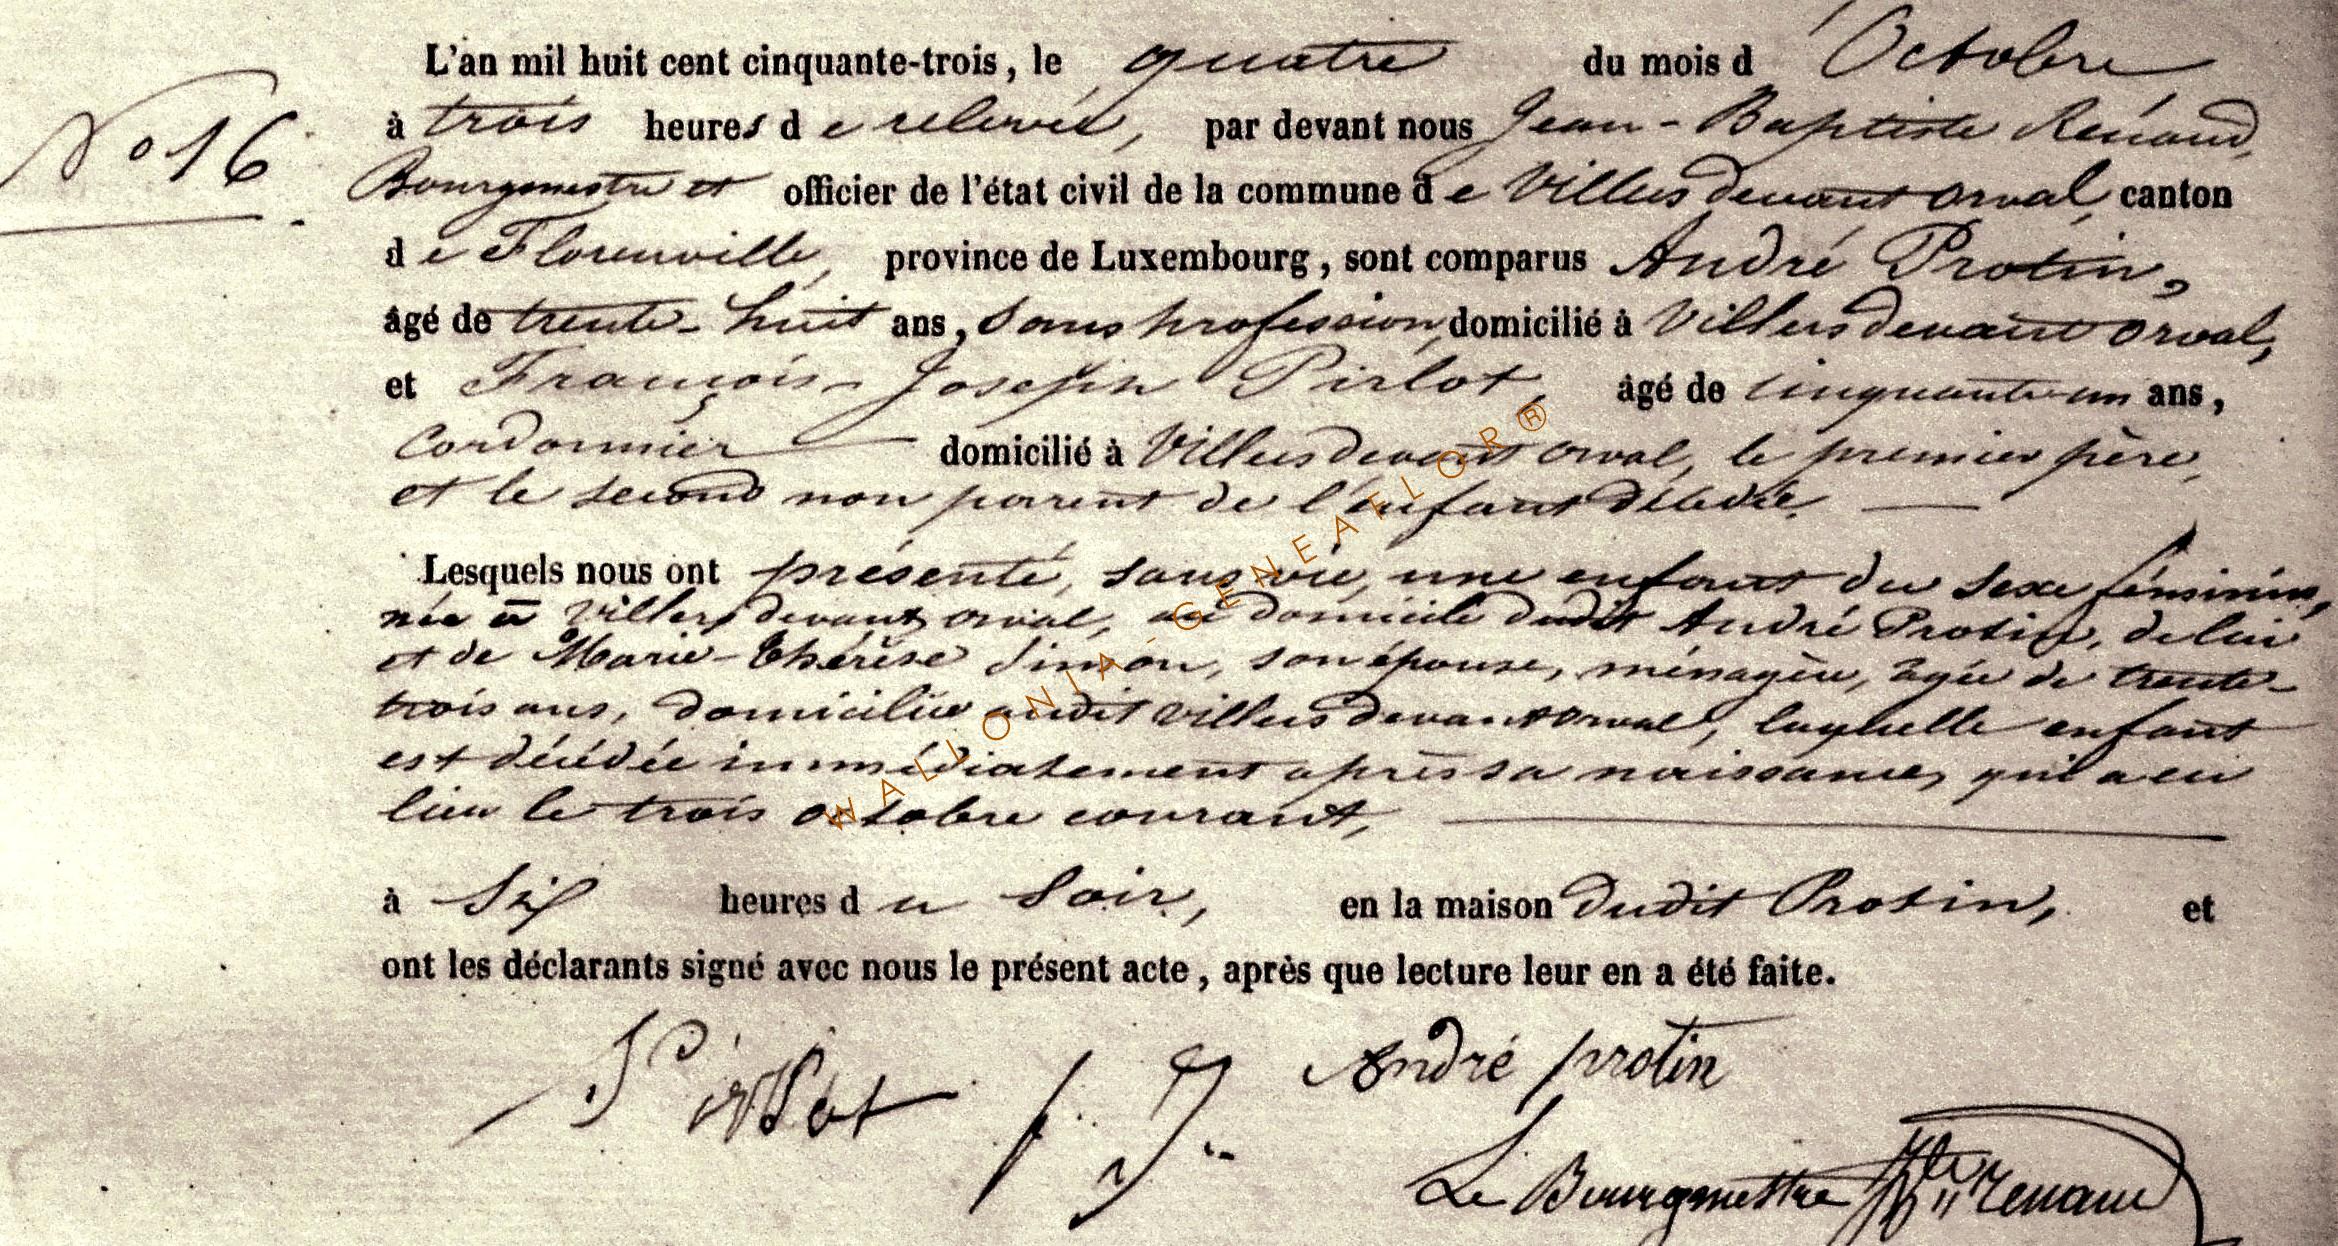 L'an mil huit cent cinquante-trois, le quatre du mois d'Octobre
à trois heures de relevée, par devant nous Jean-Baptiste Renaud,
N° 16
Bourgmestre et officier de l'état civil de la commune de Villers devant Orval, canton
de Florenville, province de Luxembourg, sont comparus André Protin,
âgé de trente-huit ans, sans profession, domicilié à Villers devant orval,
et François-Joseph Pirlot, âgé de cinquante-un ans,
Cordonnier domicilié à Villers devant orval, le premier père,
et le second non parent de l'enfant décédée.
Lesquels nous ont présenté, sans vie, une enfant du sexe féminin,
née à Villers devant orval, au domicile dudit André Protin, de lui
et de Marie-Thérèse Simon, son épouse, ménagère, âgée de trente-
trois ans, domiciliée audit Villers devant Orval, laquelle enfant
est décédée immédiatement après sa naissance, qui a eu
lieu le trois octobre courant,
à six heures du soir, en la maison dudit Protin, et
ont les déclarants signé avec nous le présent acte, après que lecture leur en a été faite.
Pirlot f. J.. André protin
Le Bourgmestre JBte Renaud
WALLONIA-GENEAFLOR®